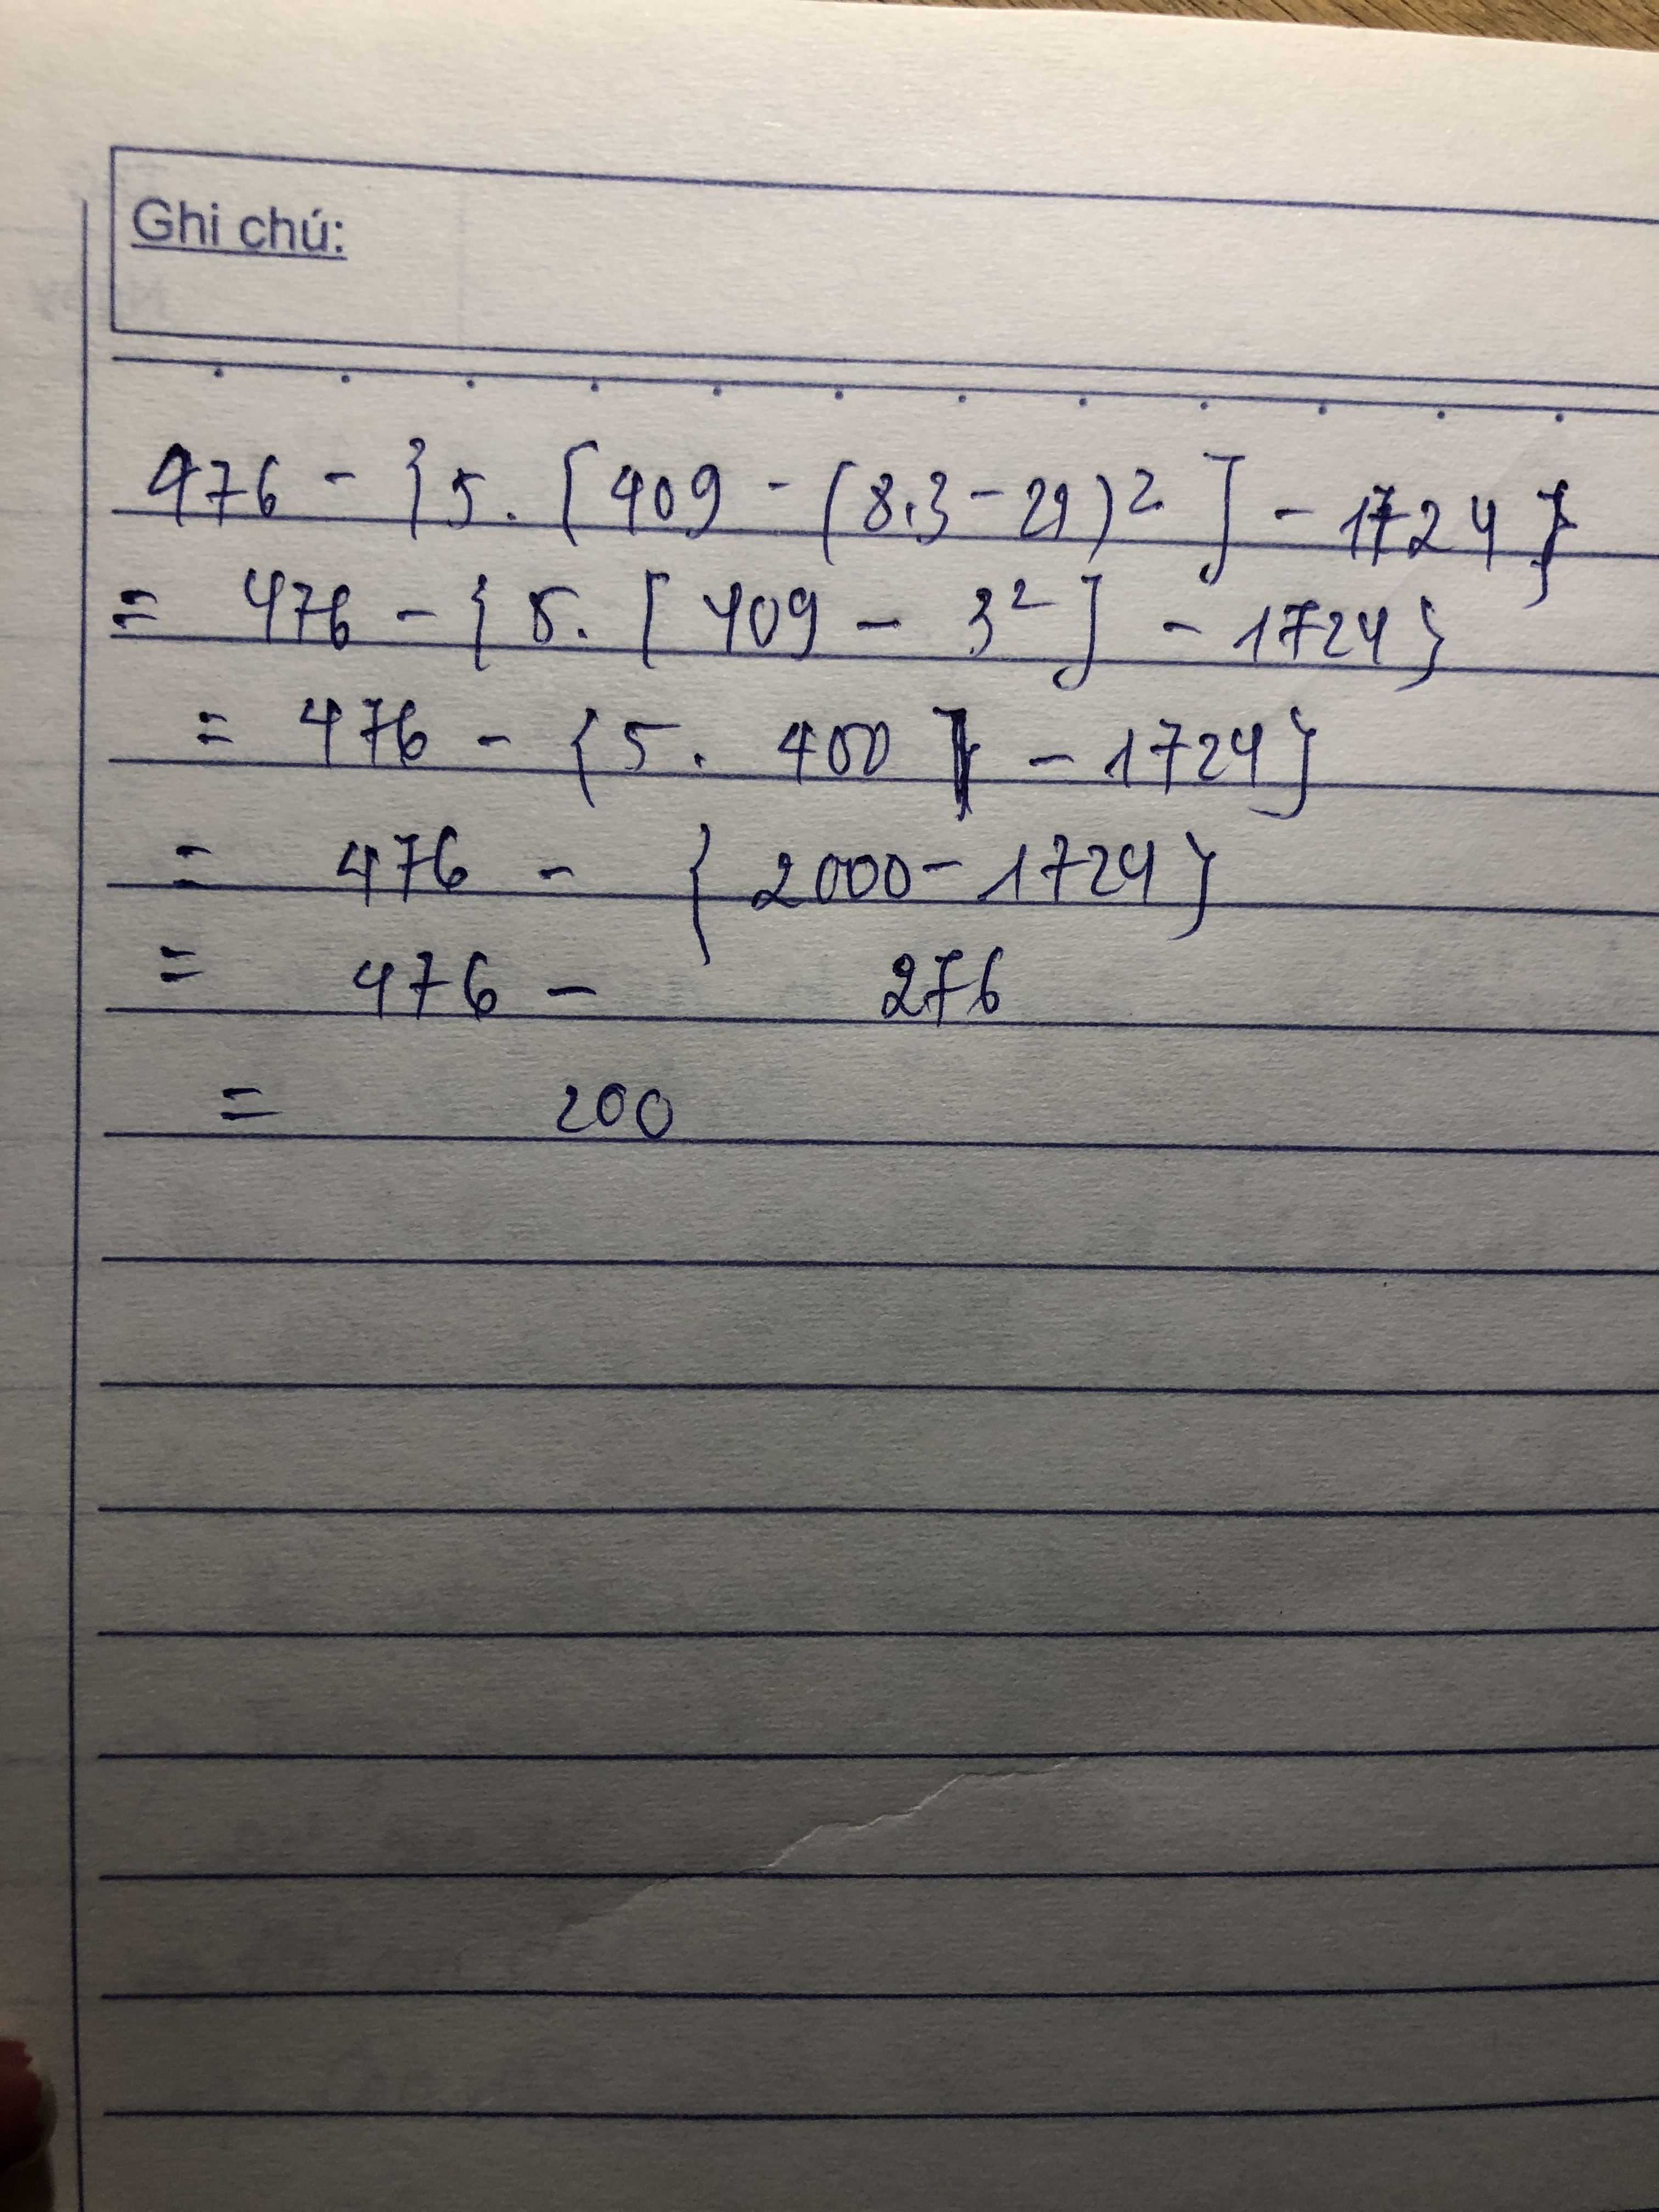 Ghi chú:
476 - {5. [409 - (8.3 - 21)² ] - 1724}
= 476 - {5. [409 - 3² ] - 1724}
= 476 - {5. 400 - 1724}
= 476 - {2000 - 1724}
= 476 - 276
= 200